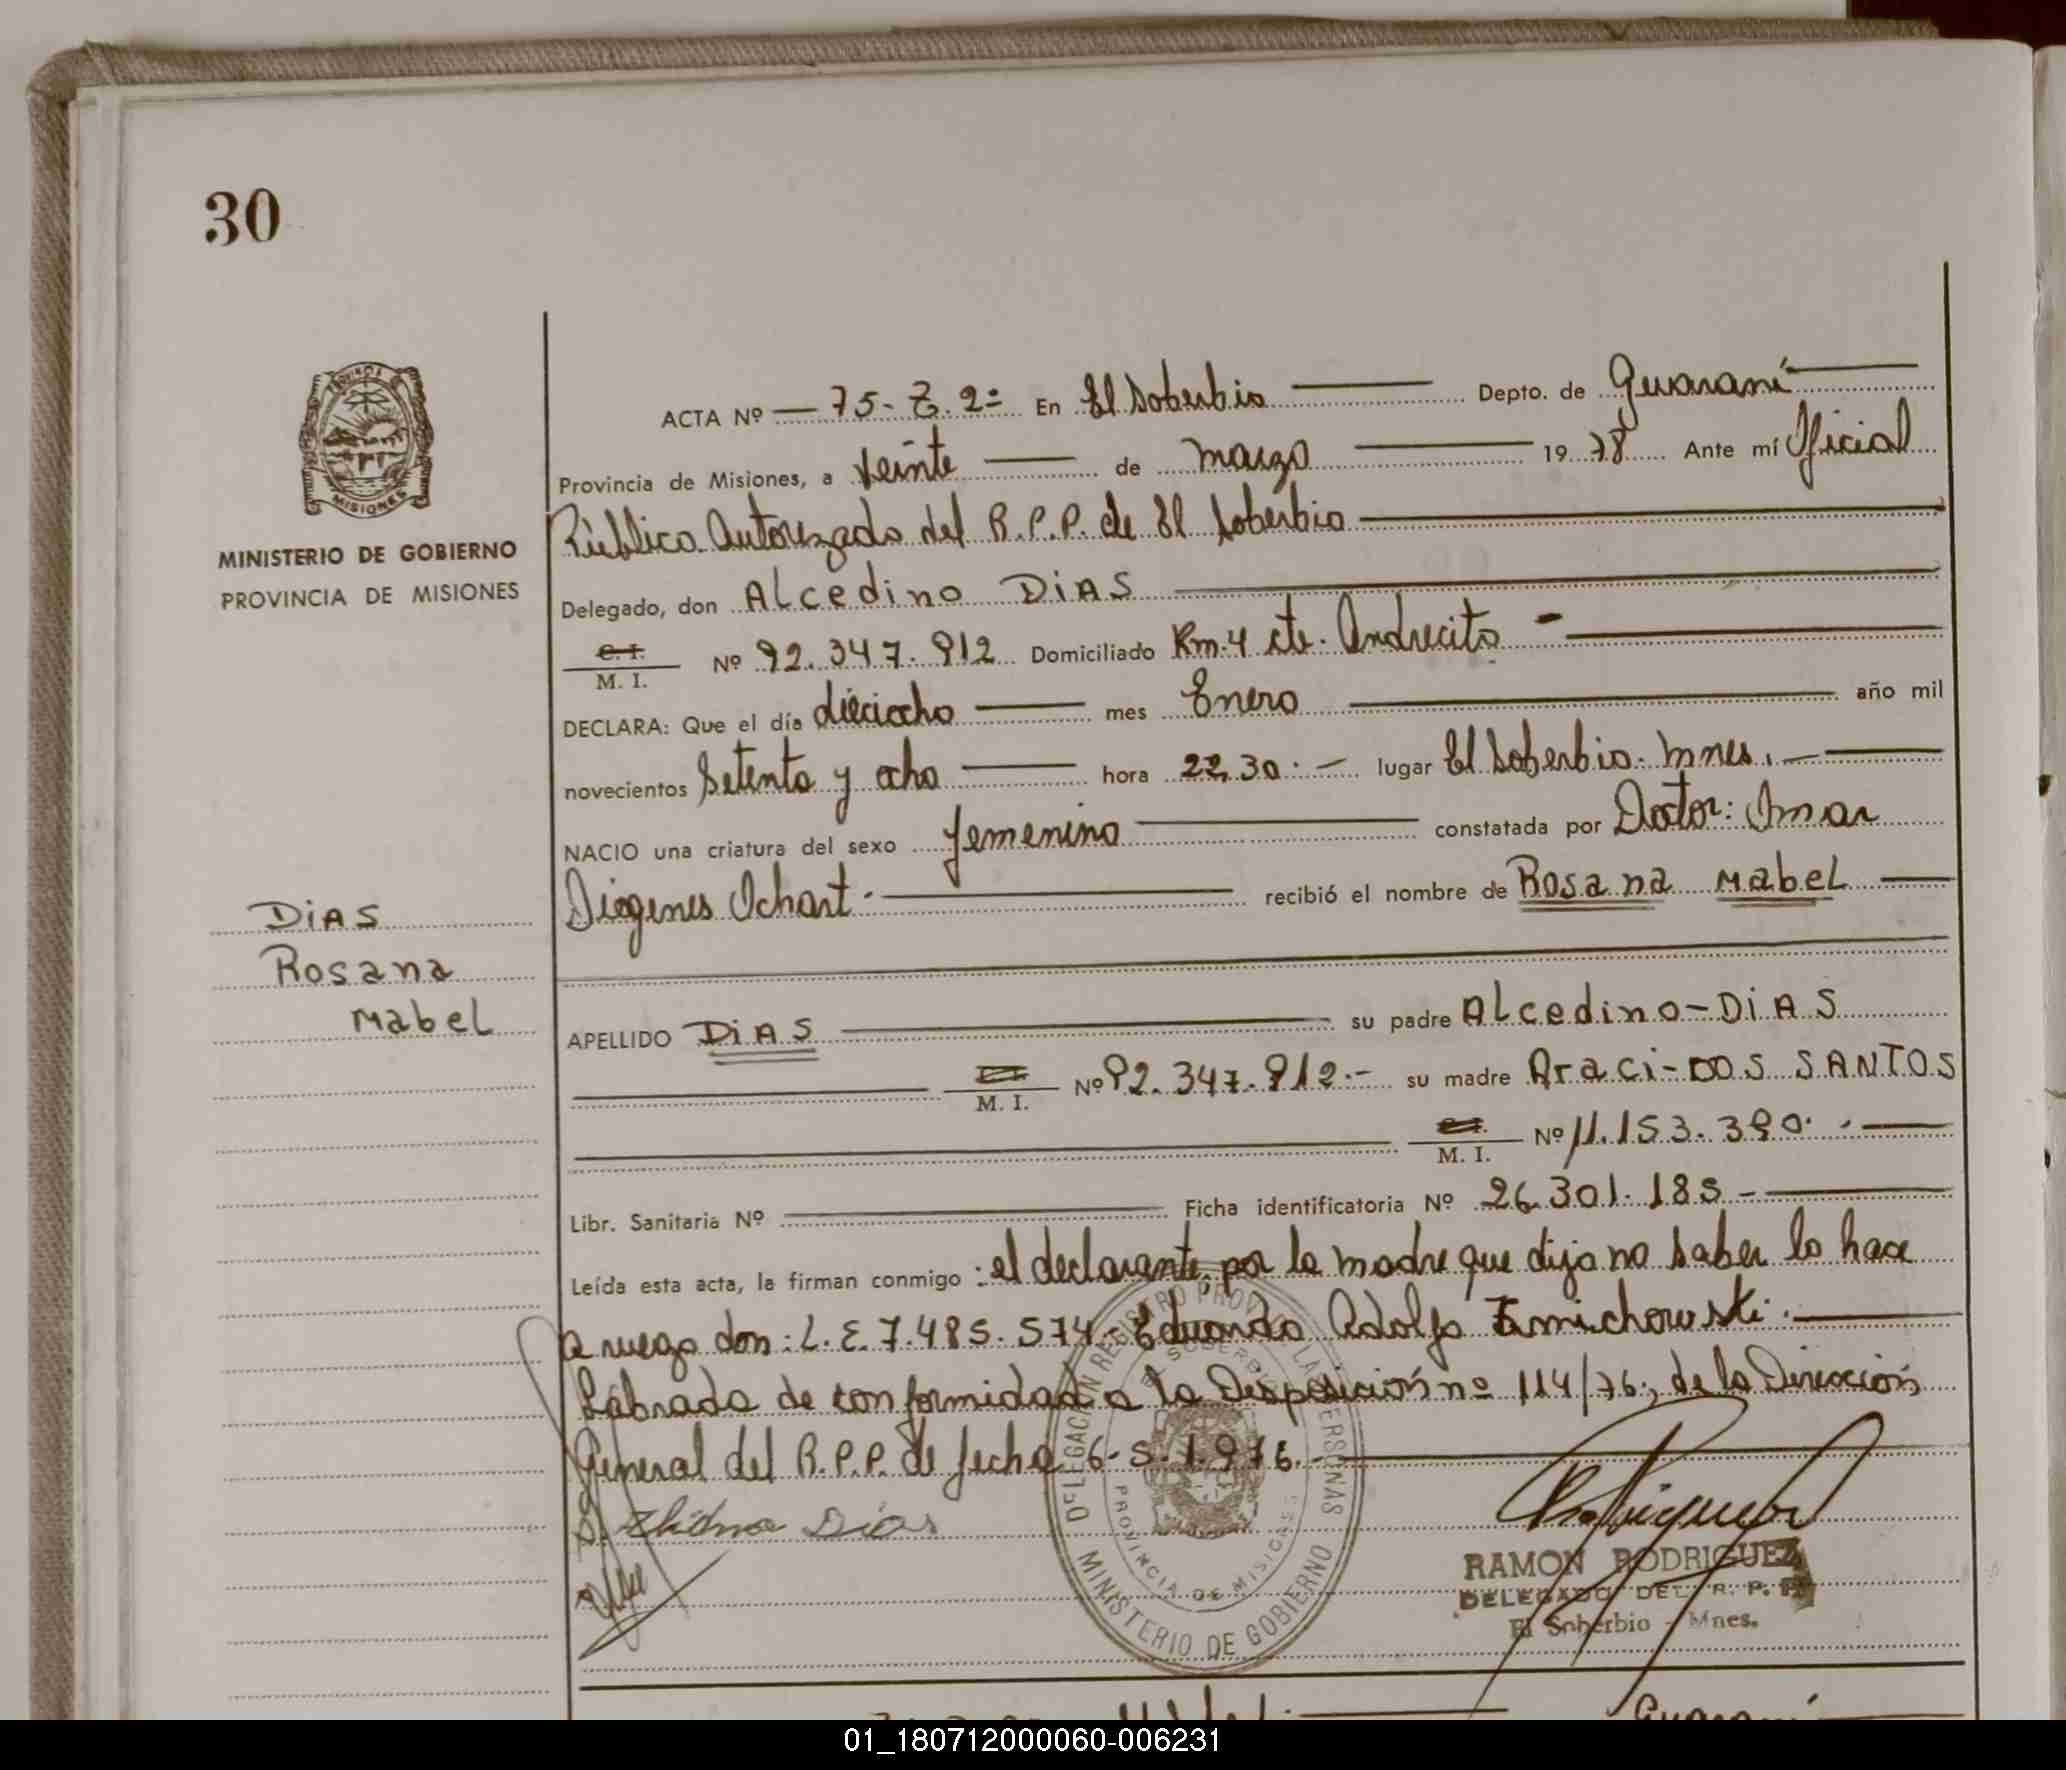 30
PROVINCIA DE
MISIONES
MINISTERIO DE GOBIERNO
PROVINCIA DE MISIONES
ACTA Nº 75- T. 2º En El Soberbio Depto. de Guaraní
Provincia de Misiones, a veinte de marzo 19 78 Ante mí Oficial
Público Autorizado del R.P.P. de El Soberbio
Delegado, don ALcedino DiAS
C. I.
M. I. Nº 92.347.912 Domiciliado Km. 4 cte. Andrecito -
DECLARA: Que el día dieciocho mes Enero año mil
novecientos setenta y ocho hora 22,30.- lugar El Soberbio. Mnes.-
NACIO una criatura del sexo femenino constatada por Doctor: Omar
Diogenes Ochart.- recibió el nombre de Rosana MabeL
DiAS
Rosana
MabeL
APELLIDO DiAS su padre ALcedino-DiAS
M. I. Nº 92.347.912.- su madre Araci-DOS SANTOS
M. I. Nº 11.153.390.-
Libr. Sanitaria Nº Ficha identificatoria Nº 26.301.185-
Leída esta acta, la firman conmigo : el declarante, por la madre que dijo no saber lo hace
a ruego don: L.E. 7.485.574- Eduardo Adolfo Zmichowski.-
Labrada de conformidad a la Disposición nº 114/76, de la Dirección
General del R.P.P. de fecha 6-5-1.976.-
Dias
DELEGACION REGISTRO PROV. DE LAS PERSONAS
EL SOBERBIO
PROVINCIA DE MISIONES
MINISTERIO DE GOBIERNO
RAMON RODRIGUEZ
DELEGADO DEL R. P. P.
El Soberbio - Mnes.
Guaraní
01_180712000060-006231